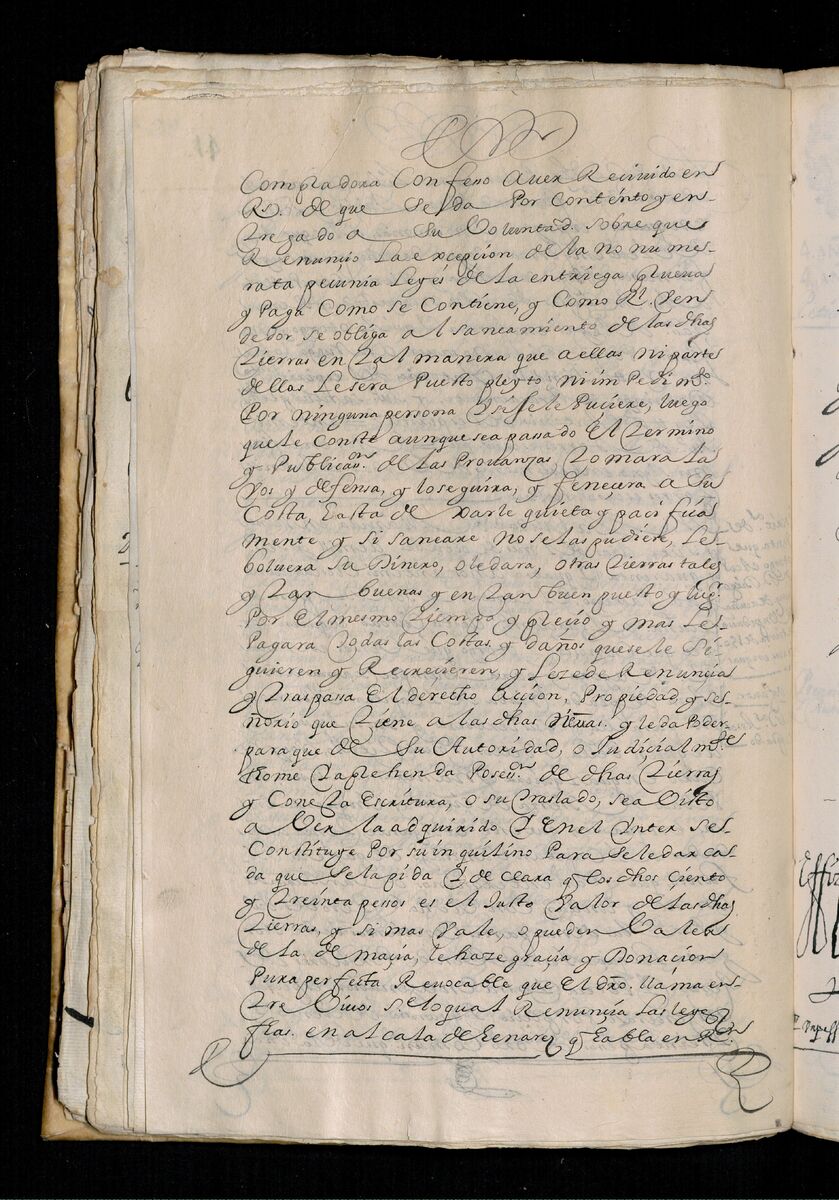 Compradora Confeso aver Recivido en
Rs. de que se da Por Contento y en-
tregado a su Voluntad. sobre que
Renuncio la excepcion de la no nume-
rata pecunia Leyes de la entriega prueva
y Paga Como se Contiene, y Como Rl. Ven
dedor se obliga al saneamiento de las dhas
tierras en tal manera que a ellas ni parte
dellas Le sera Puesto pleyto ni impedimto.
Por ninguna persona Y si se le Pusiere, luego
que le Conste aunque sea pasado El termino
y Publicaon. de las Provanzas, tomara la
vos y defensa, y lo seguira, y fenecera a su
Costa, hasta dexarle quieta y pacifica
mente y si sanearse no se las pudiere, Le
bolvera su Dinero, o le dara, otras tierras tales
y tan buenas y en tan buen puesto y lugr.
Por El mesmo tiempo y precio y mas Les
Pagara todas las Costas, y daños que se le si-
guieren y Recrecieren, y Le zede Renuncia
y traspasa El derecho acçion, Propiedad, y se-
ñorio que tiene a las dhas tierras. y le da Poder
para que de su Autoridad, o Judicial mte
tome y aprehenda Poseon. de dhas tierras
y Con esta Escritura, o su traslado, sea Visto
aVerla adquirido Y En el Ynter se
Constituye Por su inquilino Para se le dar ca-
da que se la pida Y declara q los dhos Ciento
y treinta pesos es el Justo Valor de las dhas
tierras, y si mas Vale, o pueden Valer
de la demaçia, le haze graçia y Donacion
Pura perfecta Revocable que El dro. llama en-
tre Vivos s.e lo qual Renuncia las leyes
fhas. en alcala de henares q habla en Rs.